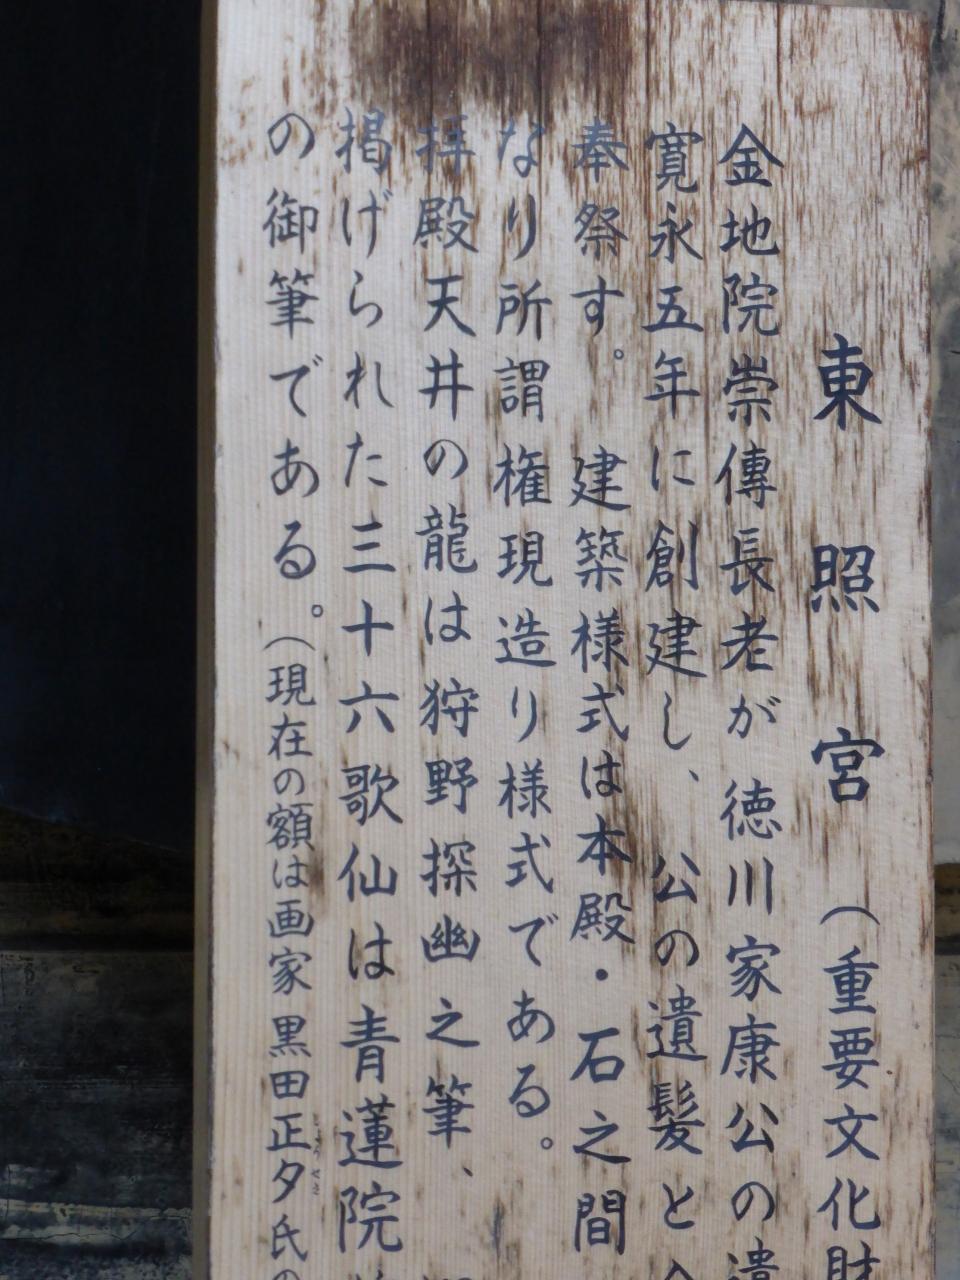 東照宮（重要文化財
金地院崇傳長老が徳川家康公の遺
寛永五年に創建し、公の遺髪と
奉祭す。建築様式は本殿・石之間
なり所謂権現造り様式である。
拝殿天井の龍は狩野探幽之筆、
掲げられた三十六歌仙は青蓮院
の御筆である。（現在の額は画家黒田正夕氏の